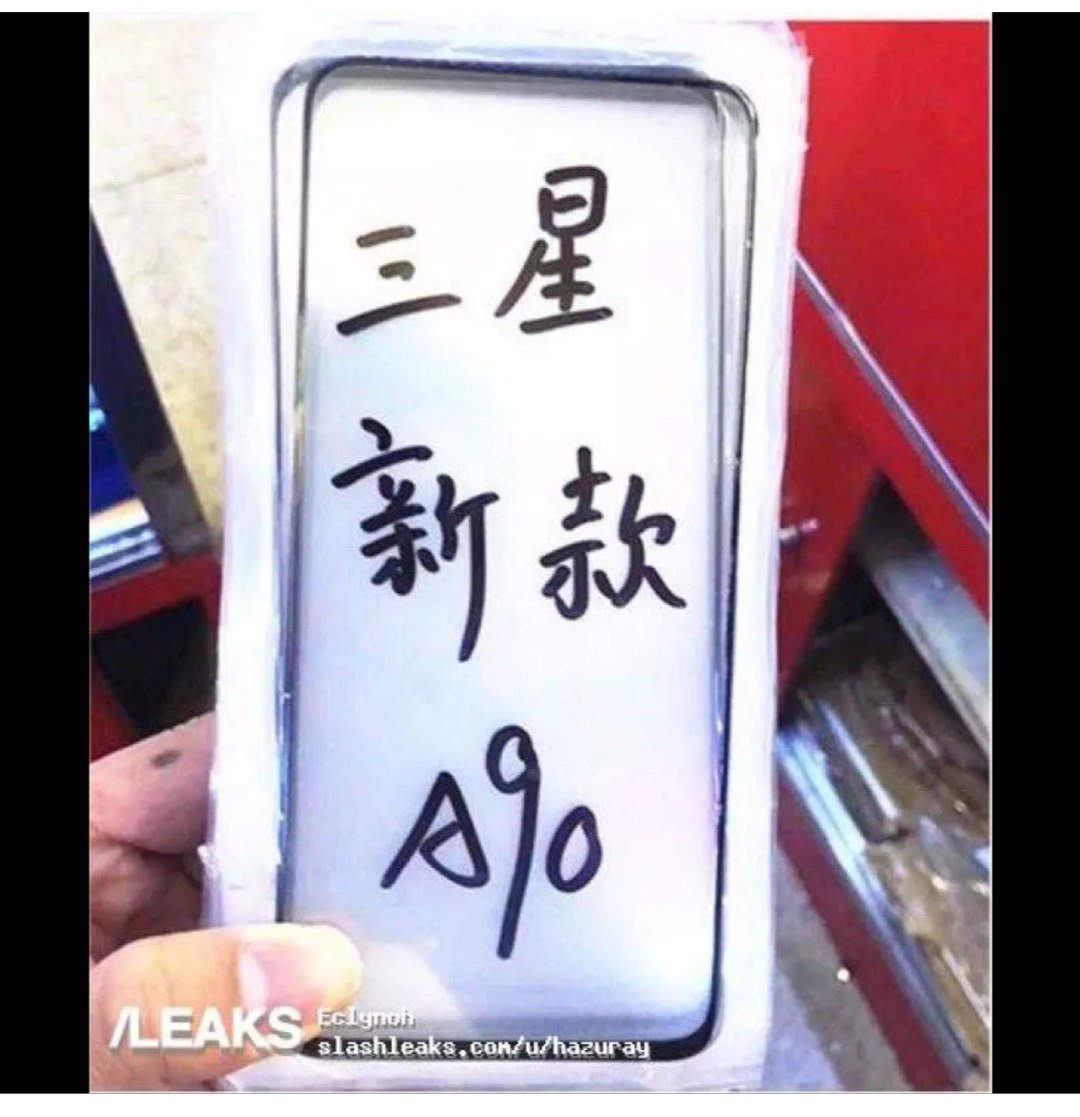 三星
新款
A90
/LEAKS
Eclynoh
slashleaks.com/u/hazuray